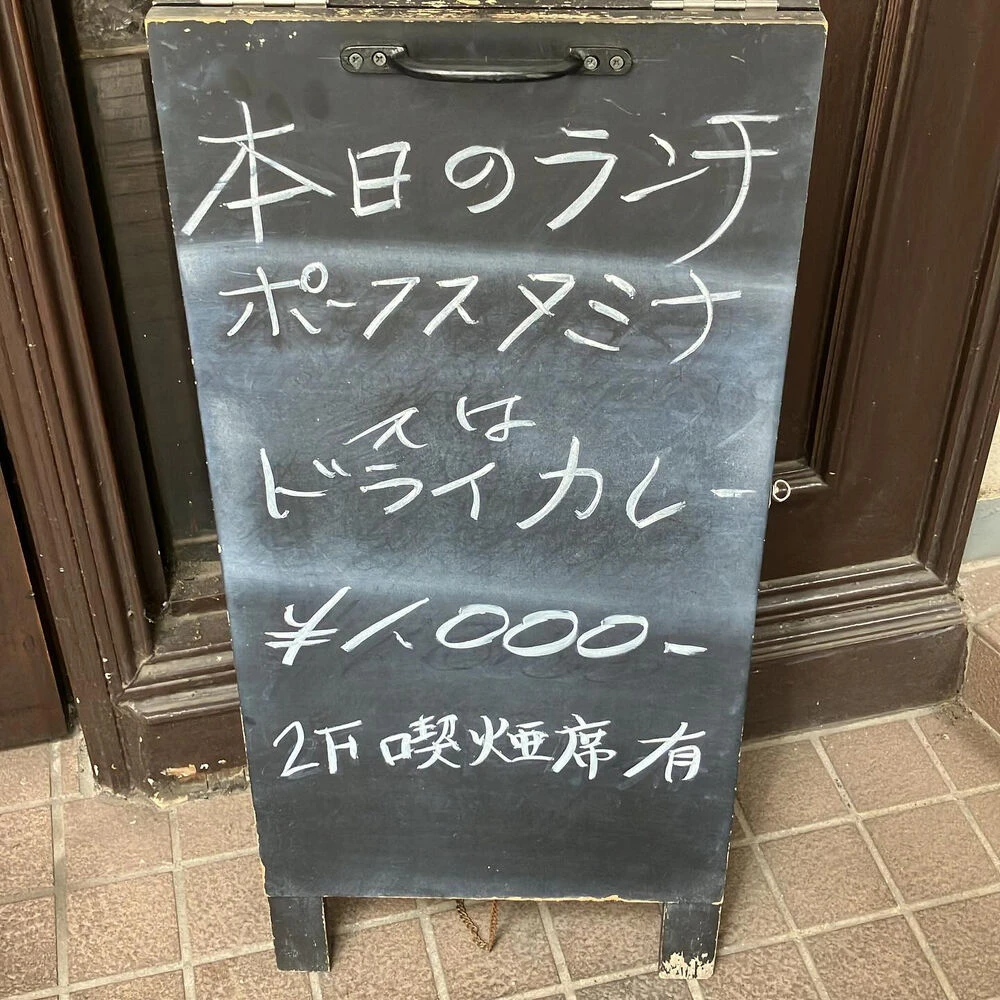 本日のランチ
ポークスタミナ
又は
ドライカレー
¥1,000-
2F 喫煙席 有